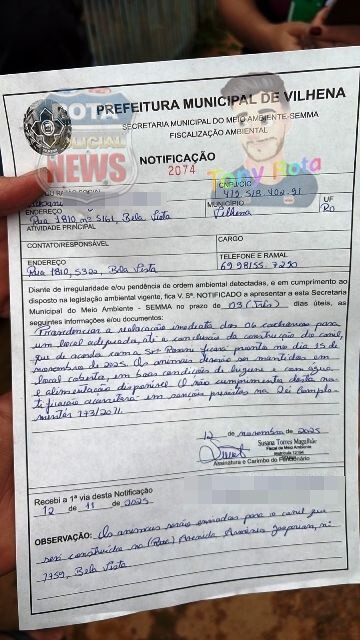 ROTA
POLICIAL
NEWS
Tony Rota
PREFEITURA MUNICIPAL DE VILHENA
SECRETARIA MUNICIPAL DO MEIO AMBIENTE-SEMMA
FISCALIZAÇÃO AMBIENTAL
NOTIFICAÇÃO
2074
RAZÃO SOCIAL
CPF/CNPJ
ENDEREÇO
MUNICÍPIO
UF
Rua 1810, nº 5161, Bela Vista
Vilhena
RO
ATIVIDADE PRINCIPAL
CONTATO/RESPONSÁVEL
CARGO
ENDEREÇO
TELEFONE E RAMAL
Rua 1810, 5302, Bela Vista
69 98155. 7290
Diante de irregularidade e/ou pendência de ordem ambiental detectadas, e em cumprimento ao
disposto na legislação ambiental vigente, fica V. Sª. NOTIFICADO a apresentar a esta Secretaria
Municipal do Meio Ambiente - SEMMA no prazo de 03 (três) dias úteis, as
seguintes informações e/ou documentos:
Providenciar a realocação imediata dos 06 cachorros para
um local adequado, até a conclusão da construção do canil,
que de acordo com a Srª Rosani ficará pronto no dia 15 de
novembro de 2025. Os animais deverão ser mantidos em
local coberto, em boas condições de higiene e com água
e alimentação disponível. O não cumprimento desta no-
tificação acarretará em sanções previstas na Lei Comple-
mentar 173/2011.
12 de novembro de 2025
Susana Torres Magalhãe
Fiscal de Meio Ambiente
Matrícula 12194
Assinatura e Carimbo do Funcionário
Recebi a 1ª via desta Notificação
12 de 11 de 2025
OBSERVAÇÃO: Os animais serão enviados para o canil que
será construído na (Rua) Avenida
7759, Bela Vista